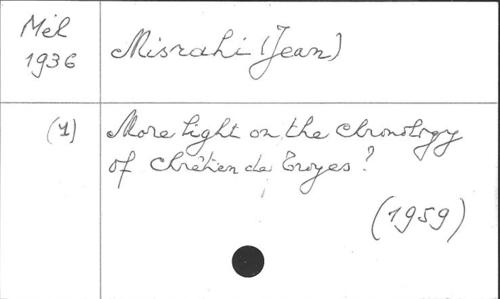 Mél
1936
Misrahi (Jean)
(1)
More light on the chronology
of Chrétien de Troyes?
(1959)